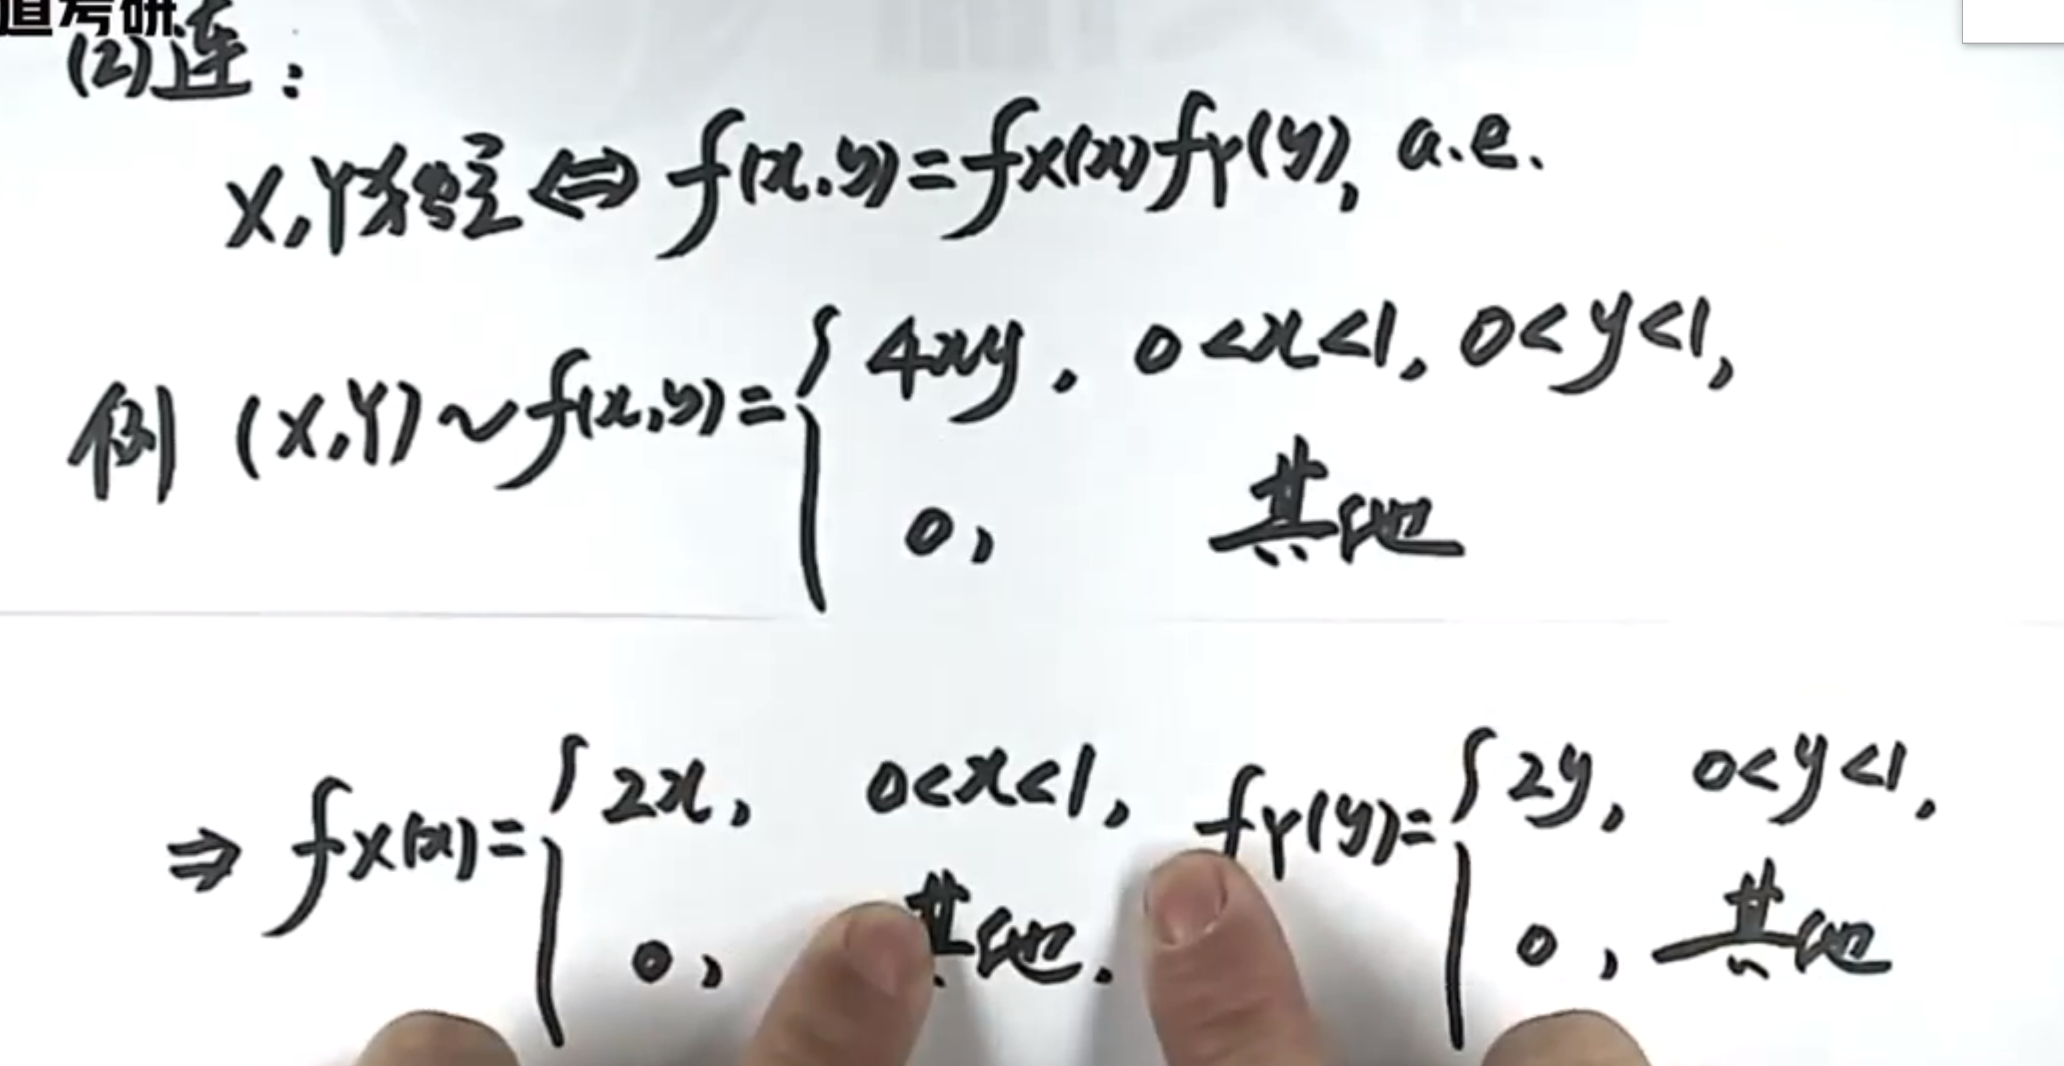 道考研
(2)连:
X,Y独立⇔f(x,y)=fX(x)fY(y), a.e.
例 (X,Y)~f(x,y)={4xy, 0<x<1, 0<y<1,
0, 其他
⇒fX(x)={2x, 0<x<1, fY(y)={2y, 0<y<1,
0, 其他. 0, 其他